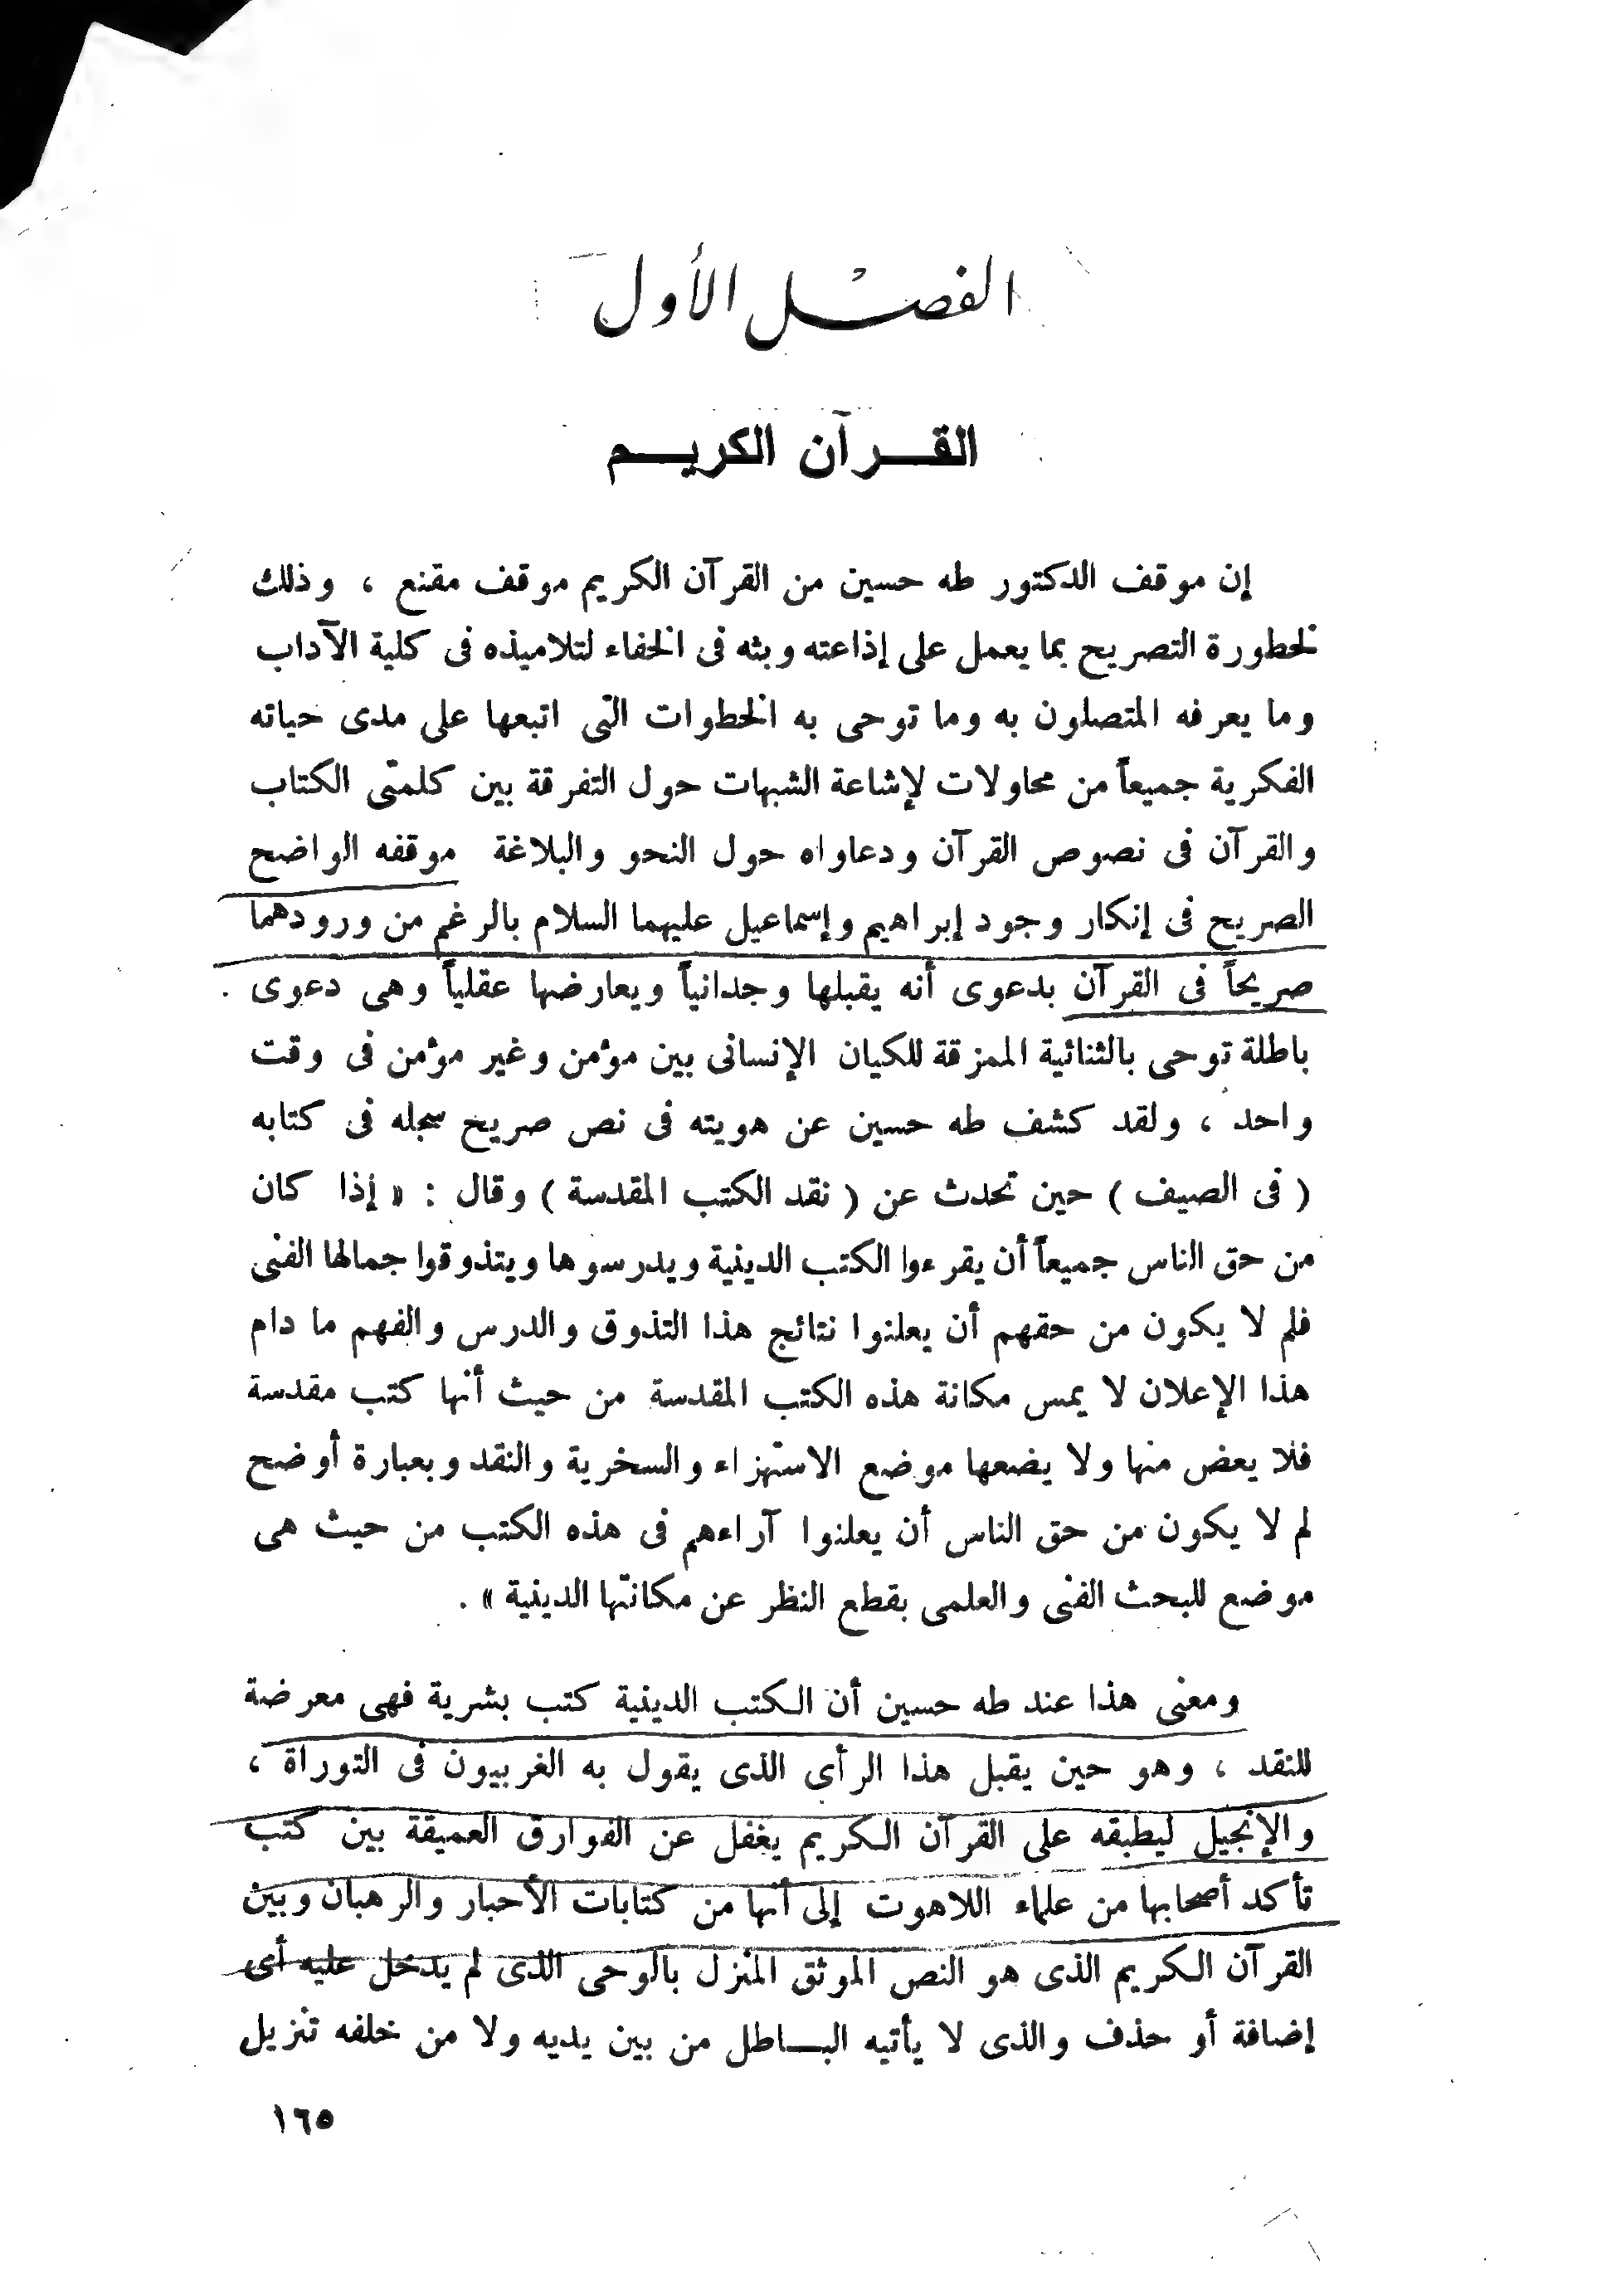 الفصل الأول
القرآن الكريم
إن موقف الدكتور طه حسين من القرآن الكريم موقف مقنع ، وذلك
لخطورة التصريح بما يعمل على إذاعته وبثه فى الخفاء لتلاميذه فى كلية الآداب
وما يعرفه المتصلون به وما توحى به الخطوات التى اتبعها على مدى حياته
الفكرية جميعاً من محاولات لإشاعة الشبهات حول التفرقة بين كلمتى الكتاب
والقرآن فى نصوص القرآن ودعاواه حول النحو والبلاغة موقفه الواضح
الصريح فى إنكار وجود إبراهيم وإسماعيل عليهما السلام بالرغم من ورودهما
صريحاً فى القرآن بدعوى أنه يقبلها وجدانياً ويعارضها عقلياً وهى دعوى .
باطلة توحى بالثنائية الممزقة للكيان الإنسانى بين مؤمن وغير مؤمن فى وقت
واحد ، ولقد كشف طه حسين عن هويته فى نص صريح سجله فى كتابه
( فى الصيف ) حين تحدث عن ( نقد الكتب المقدسة ) وقال : « إذا كان
من حق الناس جميعاً أن يقرءوا الكتب الدينية ويدرسوها ويتذوقوا جمالها الفنى
فلم لا يكون من حقهم أن يعلنوا نتائج هذا التذوق والدرس والفهم ما دام
هذا الإعلان لا يمس مكانة هذه الكتب المقدسة من حيث أنها كتب مقدسة
فلا يعض منها ولا يضعها موضع الاستهزاء والسخرية والنقد وبعبارة أوضح
لم لا يكون من حق الناس أن يعلنوا آراءهم فى هذه الكتب من حيث هى
موضع للبحث الفنى والعلمى بقطع النظر عن مكانتها الدينية » .
ومعنى هذا عند طه حسين أن الكتب الدينية كتب بشرية فهى معرضة
للنقد ، وهو حين يقبل هذا الرأى الذى يقول به الغربيون فى التوراة ،
والإنجيل ليطبقه على القرآن الكريم يغفل عن الفوارق العميقة بين كتب
تأكد أصحابها من علماء اللاهوت إلى أنها من كتابات الأحبار والرهبان وبين
القرآن الكريم الذى هو النص الموثق المنزل بالوحى الذى لم يدخل عليه أى
إضافة أو حذف والذى لا يأتيه البــاطل من بين يديه ولا من خلفه تنزيل
١٦٥